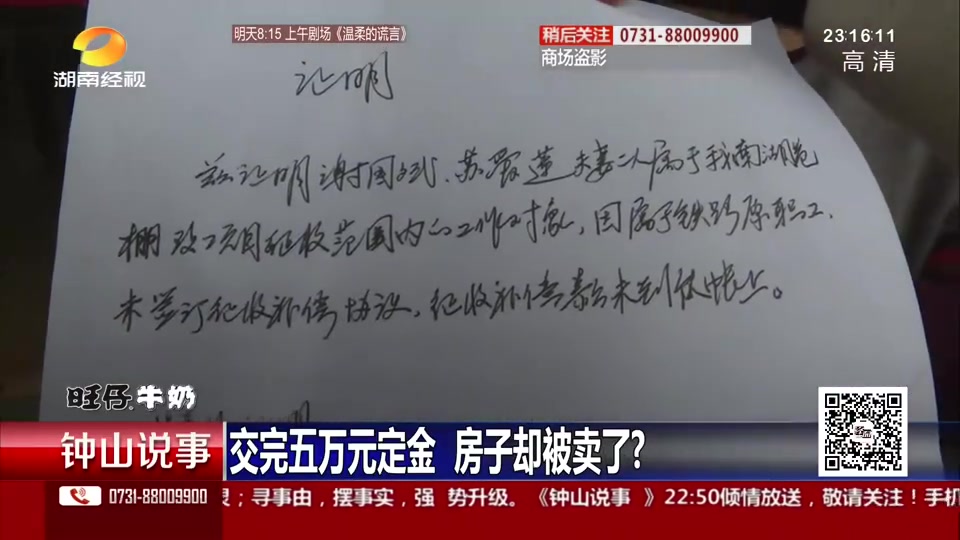 明天8:15 上午剧场《温柔的谎言》
稍后关注 0731-88009900
商场盗影
23:16:11
高清
湖南经视
证明
兹证明谢国武、苏爱莲夫妻二人属于我南湖片
棚改项目征收范围内的工作对象，因属于铁路原职工，
未签订征收补偿协议，征收补偿款未到账上。
旺仔牛奶
钟山说事
交完五万元定金 房子却被卖了?
0731-88009900
；寻事由，摆事实，强 势升级。《钟山说事 》22:50倾情放送，敬请关注！手机